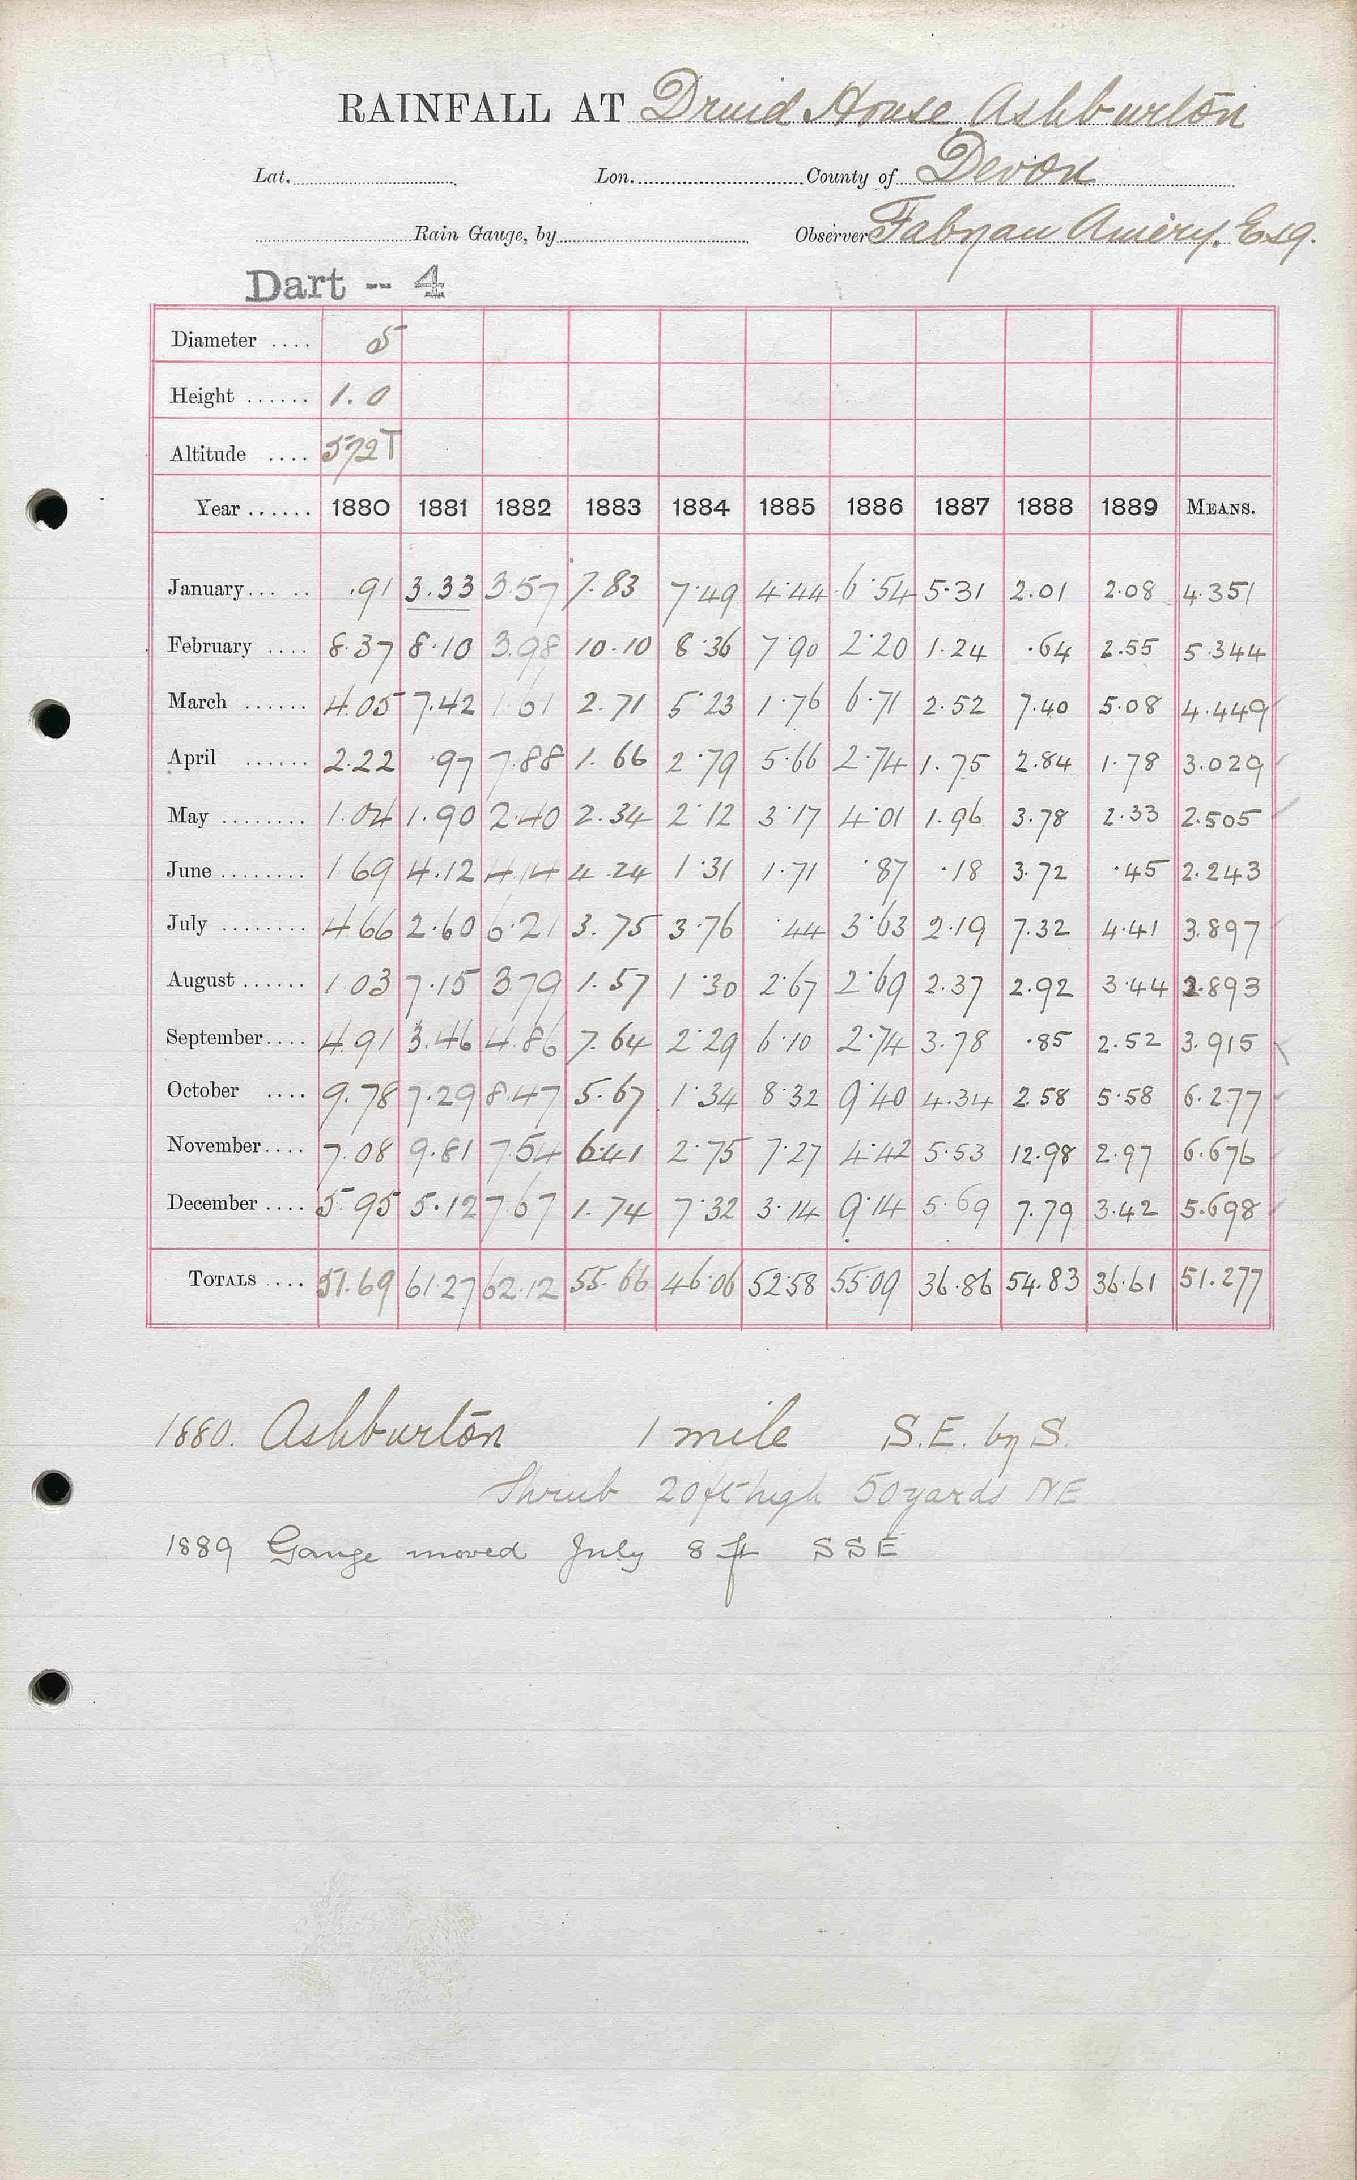 RAINFALL AT Druid House Ashburton
Lat. Lon. County of Devon
Rain Gauge, by Observer Fabyan Amery. Esq.
Dart -- 4
Diameter .... 5
Height ...... 1.0
Altitude .... 572T
Year ...... 1880 1881 1882 1883 1884 1885 1886 1887 1888 1889 MEANS.
January... .. .91 3.33 3.57 7.83 7.49 4.44 6.54 5.31 2.01 2.08 4.351
February .... 8.37 8.10 3.98 10.10 8.36 7.90 2.20 1.24 .64 2.55 5.344
March ...... 4.05 7.42 1.61 2.71 5.23 1.76 6.71 2.52 7.40 5.08 4.449
April ...... 2.22 .97 7.88 1.66 2.79 5.66 2.74 1.75 2.84 1.78 3.029
May ........ 1.04 1.90 2.40 2.34 2.12 3.17 4.01 1.96 3.78 2.33 2.505
June ........ 1.69 4.12 4.14 4.24 1.31 1.71 .87 .18 3.72 .45 2.243
July ........ 4.66 2.60 6.21 3.75 3.76 .44 3.63 2.19 7.32 4.41 3.897
August ...... 1.03 7.15 3.79 1.57 1.30 2.67 2.69 2.37 2.92 3.44 2.893
September.... 4.91 3.46 4.86 7.64 2.29 6.10 2.74 3.78 .85 2.52 3.915
October .... 9.78 7.29 8.47 5.67 1.34 8.32 9.40 4.34 2.58 5.58 6.277
November.... 7.08 9.81 7.54 6.41 2.75 7.27 4.42 5.53 12.98 2.97 6.676
December .... 5.95 5.12 7.67 1.74 7.32 3.14 9.14 5.69 7.79 3.42 5.698
TOTALS .... 51.69 61.27 62.12 55.66 46.06 52.58 55.09 36.86 54.83 36.61 51.277
1880. Ashburton 1 mile S.E. by S.
Shrub 20ft high 50 yards NE
1889 Gauge moved July 8 ft SSE